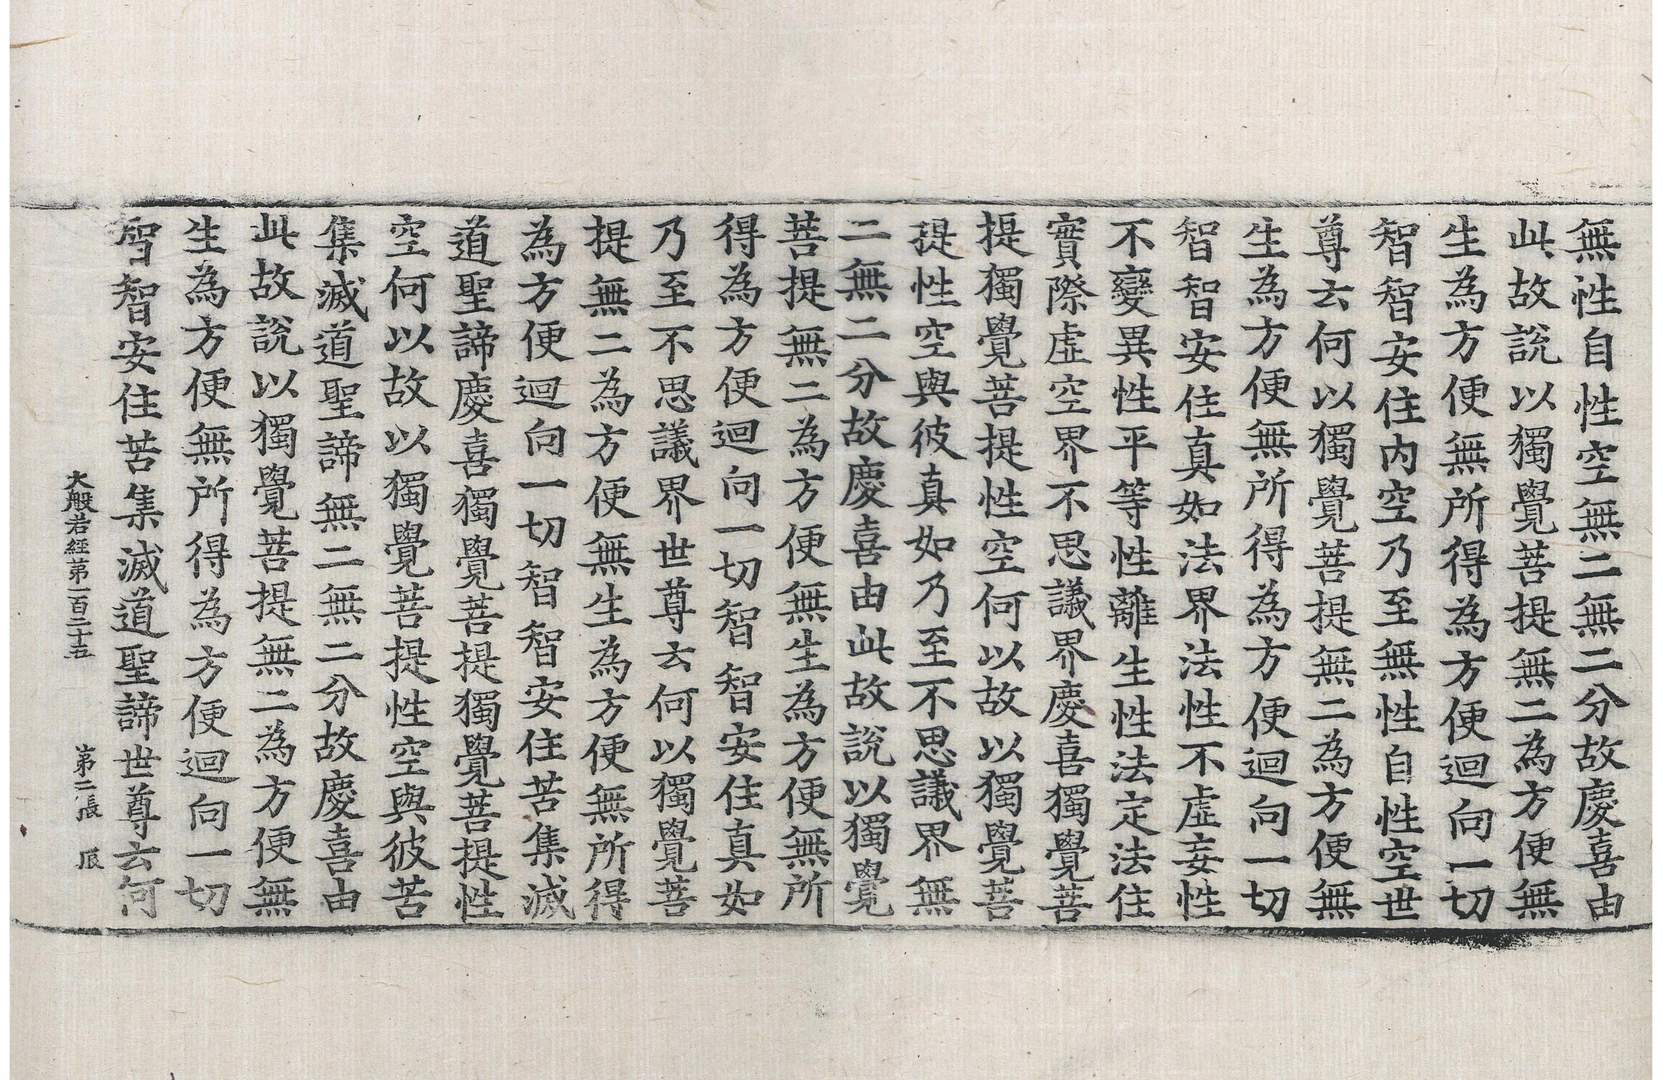 無性自性空無二無二分故慶喜由
此故說以獨覺菩提無二為方便無
生為方便無所得為方便迴向一切
智智安住內空乃至無性自性空世
尊云何以獨覺菩提無二為方便無
生為方便無所得為方便迴向一切
智智安住真如法界法性不虛妄性
不變異性平等性離生性法定法住
實際虛空界不思議界慶喜獨覺菩
提獨覺菩提性空何以故以獨覺菩
提性空與彼真如乃至不思議界無
二無二分故慶喜由此故說以獨覺
菩提無二為方便無生為方便無所
得為方便迴向一切智智安住真如
乃至不思議界世尊云何以獨覺菩
提無二為方便無生為方便無所得
為方便迴向一切智智安住苦集滅
道聖諦慶喜獨覺菩提獨覺菩提性
空何以故以獨覺菩提性空與彼苦
集滅道聖諦無二無二分故慶喜由
此故說以獨覺菩提無二為方便無
生為方便無所得為方便迴向一切
智智安住苦集滅道聖諦世尊云何
大般若經第一百二十五　第二張　辰